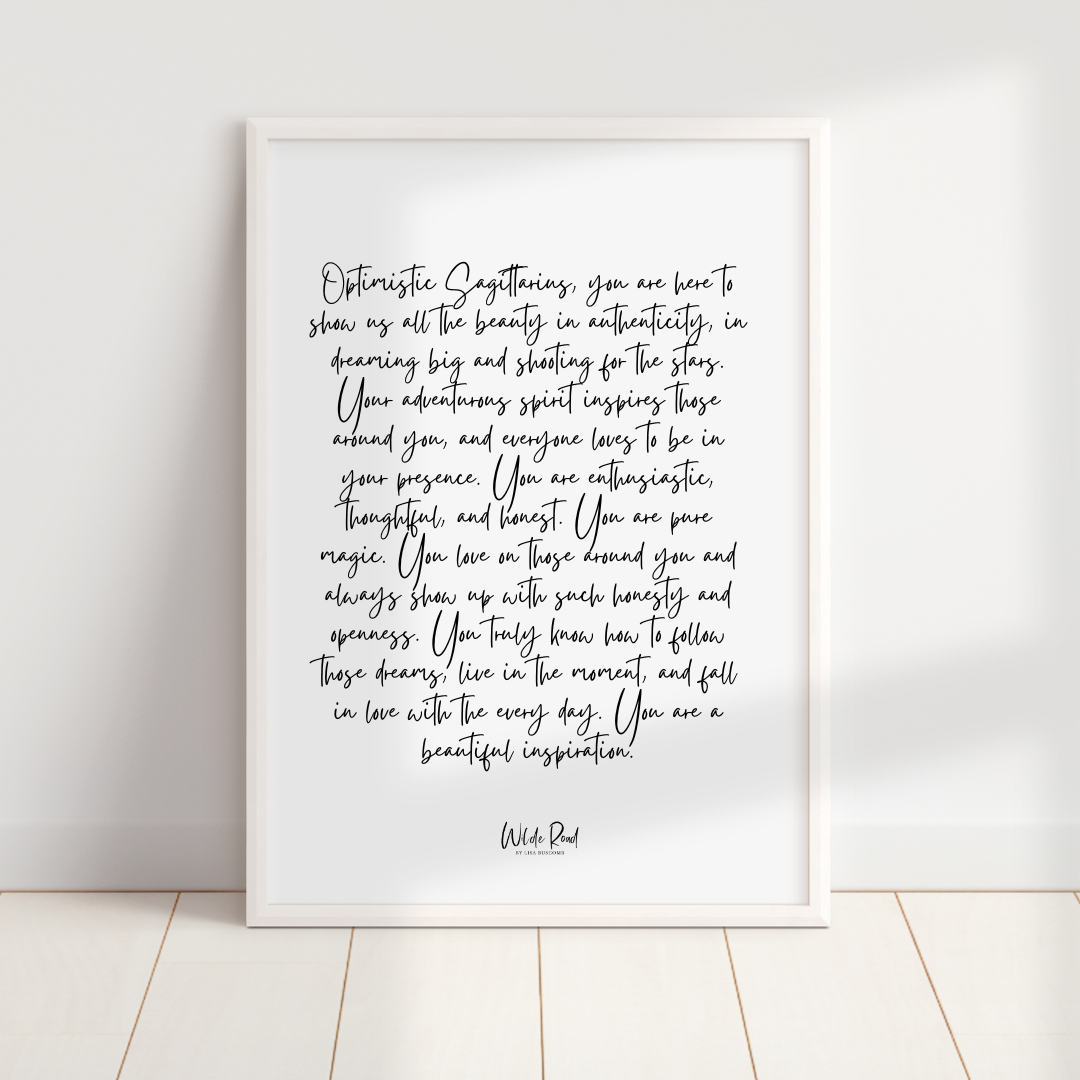 Optimistic Sagittarius, you are here to
show us all the beauty in authenticity, in
dreaming big and shooting for the stars.
Your adventurous spirit inspires those
around you, and everyone loves to be in
your presence. You are enthusiastic,
thoughtful, and honest. You are pure
magic. You love on those around you and
always show up with such honesty and
openness. You truly know how to follow
those dreams, live in the moment, and fall
in love with the every day. You are a
beautiful inspiration.
Wilde Road
BY LISA BUSCOMB